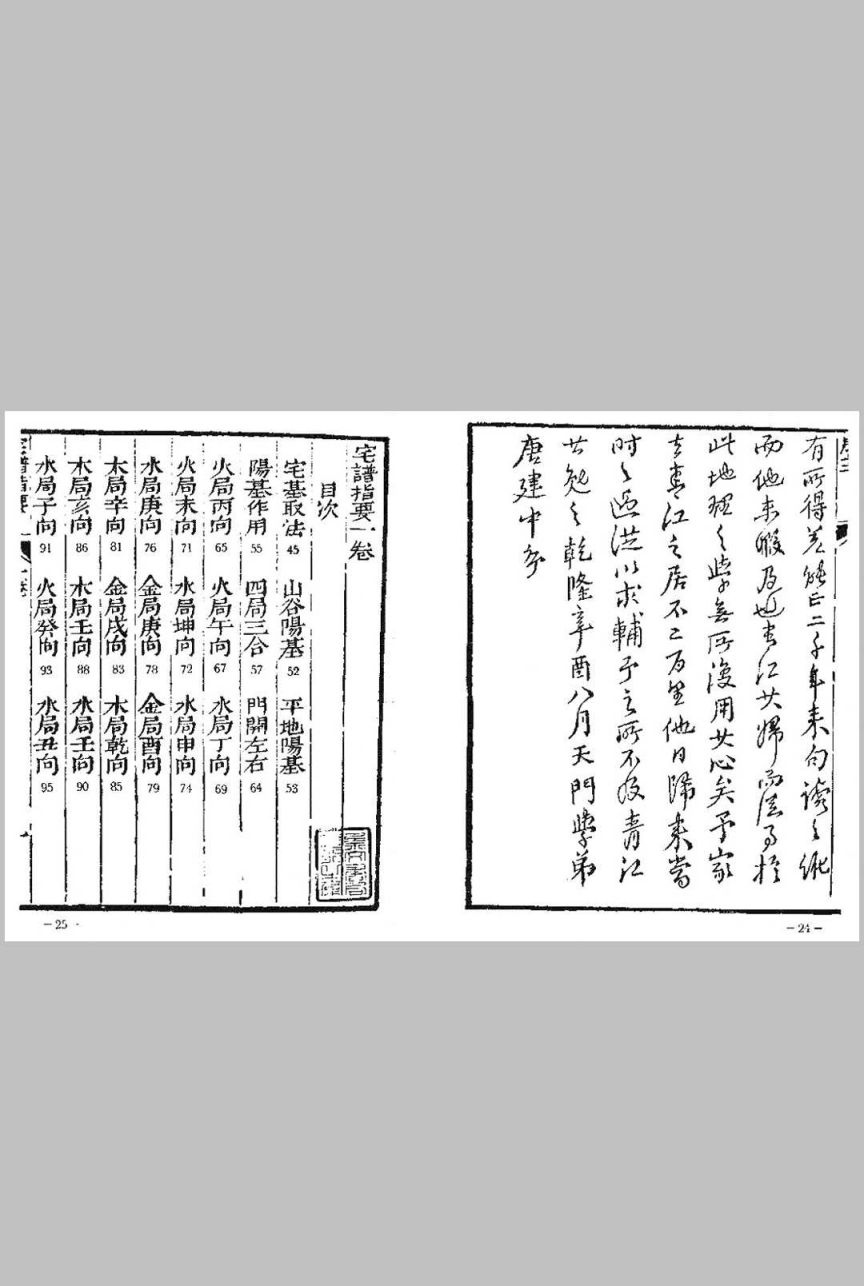 有所得差能正二千年来句讀之訛
而他未暇及也青江其歸而從事於
此地理之學無所復用其心矣予家
去青江之居不二百里他日歸来當
時々過從以求輔予之所不及青江
其勉之乾隆辛酉八月天門學弟
唐建中序
－24－
宅譜指要一卷
目次
宅基取法 45 山谷陽基 52 平地陽基 53
陽基作用 55 四局三合 57 門開左右 64
火局丙向 65 火局午向 67 水局丁向 69
火局未向 71 水局坤向 72 水局申向 74
水局庚向 76 金局庚向 78 金局酉向 79
木局辛向 81 金局戌向 83 木局乾向 85
木局亥向 86 木局壬向 88 水局壬向 90
水局子向 91 火局癸向 93 水局丑向 95
宅譜指要
－25－